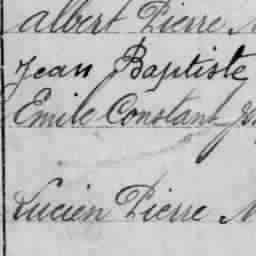 Albert Pierre
Jean Baptiste
Emile Constant
Lucien Pierre